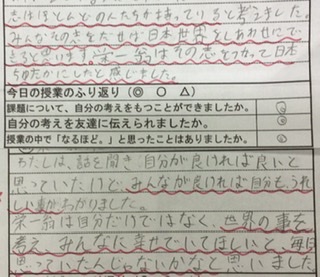 志はほとんどの人たちが持っていると考えました。
みんなその志を大せば日本世界をしあわせにで
きると思います。栄一翁はその志をつかって日本
をゆたかにしたと感じました。
今日の授業のふり返り（◎ ○ △）
課題について、自分の考えをもつことができましたか。 ◎
自分の考えを友達に伝えられましたか。 ○
授業の中で「なるほど。」と思ったことはありましたか。 ◎
わたしは、話を聞き自分が良ければ良いと
思っていたけど、みんなが良ければ自分もうれ
しい事がわかりました。
栄一翁は自分だけではなく、世界の事を
考え、みんなに幸せでいてほしいと、毎日
思っていたんじゃないかなと思いました